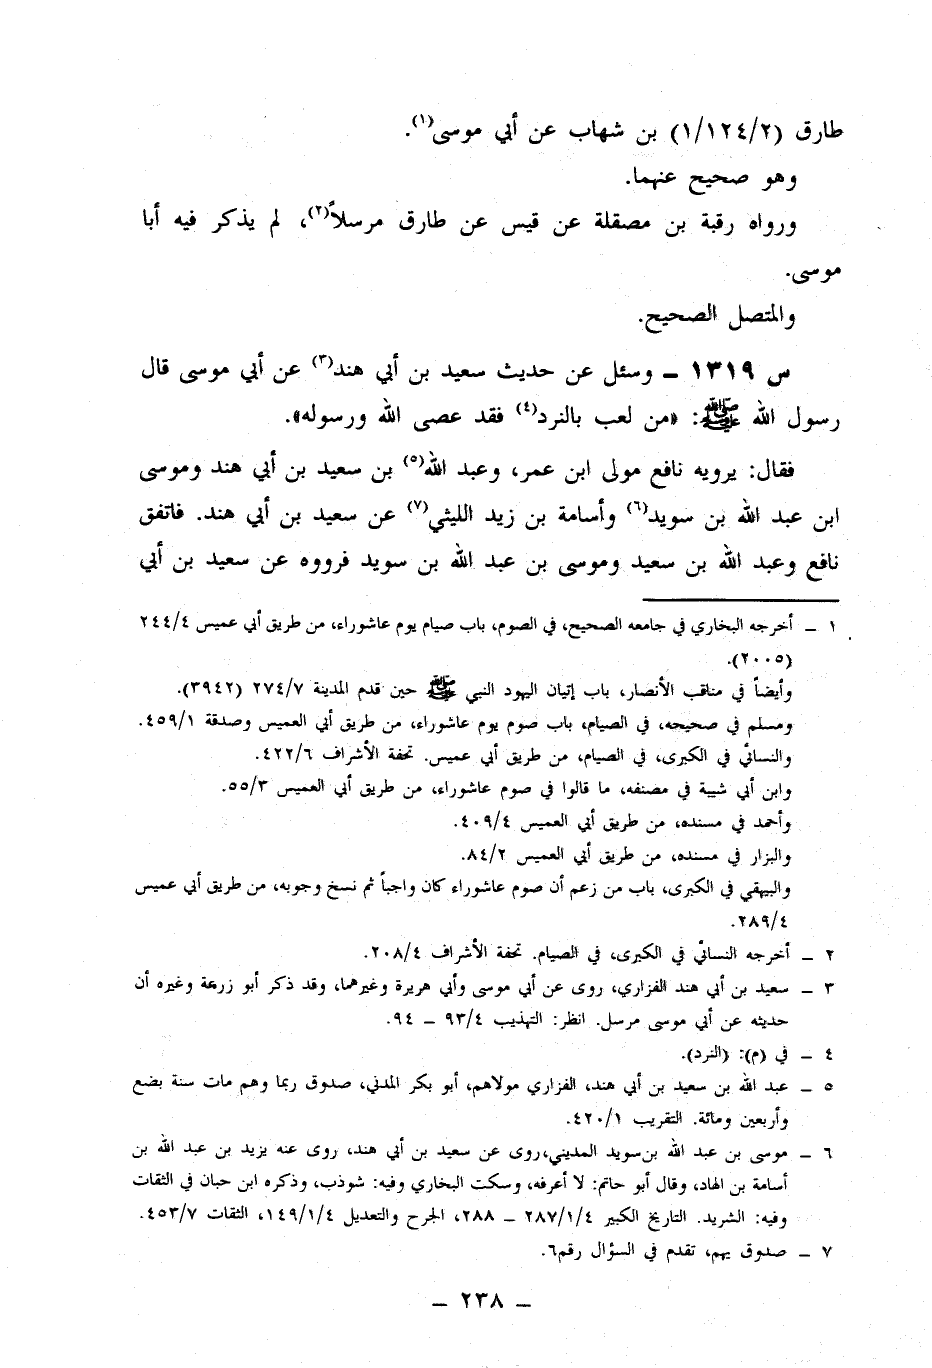 طارق (١/١٢٤/٢) بن شهاب عن أبي موسى(١).
وهو صحيح عنهما.
ورواه رقبة بن مصقلة عن قيس عن طارق مرسلاً(٢)، لم يذكر فيه أبا
موسى.
والمتصل الصحيح.
س ١٣١٩ ـ وسئل عن حديث سعيد بن أبي هند(٣) عن أبي موسى قال
رسول الله ﷺ: «من لعب بالنرد(٤) فقد عصى الله ورسوله».
فقال: يرويه نافع مولى ابن عمر، وعبد الله(٥) بن سعيد بن أبي هند وموسى
ابن عبد الله بن سويد(٦) وأسامة بن زيد الليثي(٧) عن سعيد بن أبي هند. فاتفق
نافع وعبد الله بن سعيد وموسى بن عبد الله بن سويد فرووه عن سعيد بن أبي
١ ـ أخرجه البخاري في جامعه الصحيح، في الصوم، باب صيام يوم عاشوراء، من طريق أبي عميس ٢٤٤/٤
(٢٠٠٥).
وأيضاً في مناقب الأنصار، باب إتيان اليهود النبي ﷺ حين قدم المدينة ٢٧٤/٧ (٣٩٤٢).
ومسلم في صحيحه، في الصيام، باب صوم يوم عاشوراء، من طريق أبي العميس وصدقة ٤٥٩/١.
والنسائي في الكبرى، في الصيام، من طريق أبي عميس. تحفة الأشراف ٤٢٢/٦.
وابن أبي شيبة في مصنفه، ما قالوا في صوم عاشوراء، من طريق أبي العميس ٥٥/٣.
وأحمد في مسنده، من طريق أبي العميس ٤٠٩/٤.
والبزار في مسنده، من طريق أبي العميس ٨٤/٢.
والبيهقي في الكبرى، باب من زعم أن صوم عاشوراء كان واجباً ثم نسخ وجوبه، من طريق أبي عميس
٢٨٩/٤.
٢ ـ أخرجه النسائي في الكبرى، في الصيام. تحفة الأشراف ٢٠٨/٤.
٣ ـ سعيد بن أبي هند الفزاري، روى عن أبي موسى وأبي هريرة وغيرهما، وقد ذكر أبو زرعة وغيره أن
حديثه عن أبي موسى مرسل. انظر: التهذيب ٩٣/٤ ـ ٩٤.
٤ ـ في (م): (النرد).
٥ ـ عبد الله بن سعيد بن أبي هند، الفزاري مولاهم، أبو بكر المدني، صدوق ربما وهم مات سنة بضع
وأربعين ومائة. التقريب ٤٢٠/١.
٦ ـ موسى بن عبد الله بن سويد المديني، روى عن سعيد بن أبي هند، روى عنه يزيد بن عبد الله بن
أسامة بن الهاد، وقال أبو حاتم: لا أعرفه، وسكت البخاري وفيه: شوذب، وذكره ابن حبان في الثقات
وفيه: الشريد. التاريخ الكبير ٢٨٧/١/٤ ـ ٢٨٨، الجرح والتعديل ١٤٩/١/٤، الثقات ٤٥٣/٧.
٧ ـ صدوق يهم، تقدم في السؤال رقم٦.
ـ ٢٣٨ ـ